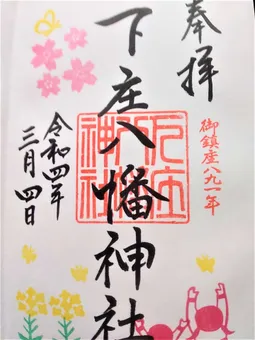 奉拝
御鎮座八九一年
下庄八幡神社
令和四年
三月四日